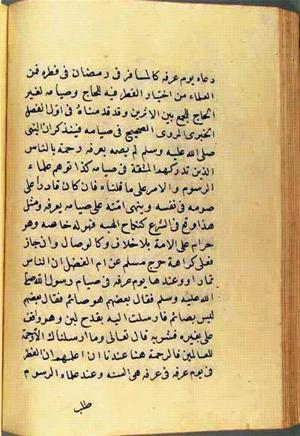 دعاء يوم عرفه كالمسافر فى رمضان فى فطره فمن
العلماء من اختيار الفطر فيه للحاج وصيامه لغير
الحاج للجمع بين الاثرين وقد قدمناه فى اول الفصل
الخبرى المروى الصحيح فى صيامه فيذكر ان النبى
صلى الله عليه وسلم لم يصمه بعرفه رحمة بالناس
الذين تدركهم المشقة فى صيامه كذا توهم علماء
الرسوم والامر على ما قلناه فان كان قادرا على
صومه فى نفسه وينهى امته على صيامه بعرفه ومثل
هذا وقع فى الشرع كنكاح الهبه فهو له خاصه وهو
حرام على الامة بلا خلاف وكالوصال وان جاز
فعلى كراهة خرج مسلم عن ام الفضل ان الناس
تماروا عندها يوم عرفه فى صيام رسول الله صلى
الله عليه وسلم فقال بعضهم هو صائم فقال بعضهم
ليس بصائم فارسلت اليه بقدح لبن وهو واقف
على بعيره فشربه قال تعالى وما ارسلناك الا رحمة
للعالمين فالرحمة هنا عندنا ان اعلمهم ان الفطر
فى يوم عرفه فى عرفه هى السنه وعند علماء الرسوم
طلب